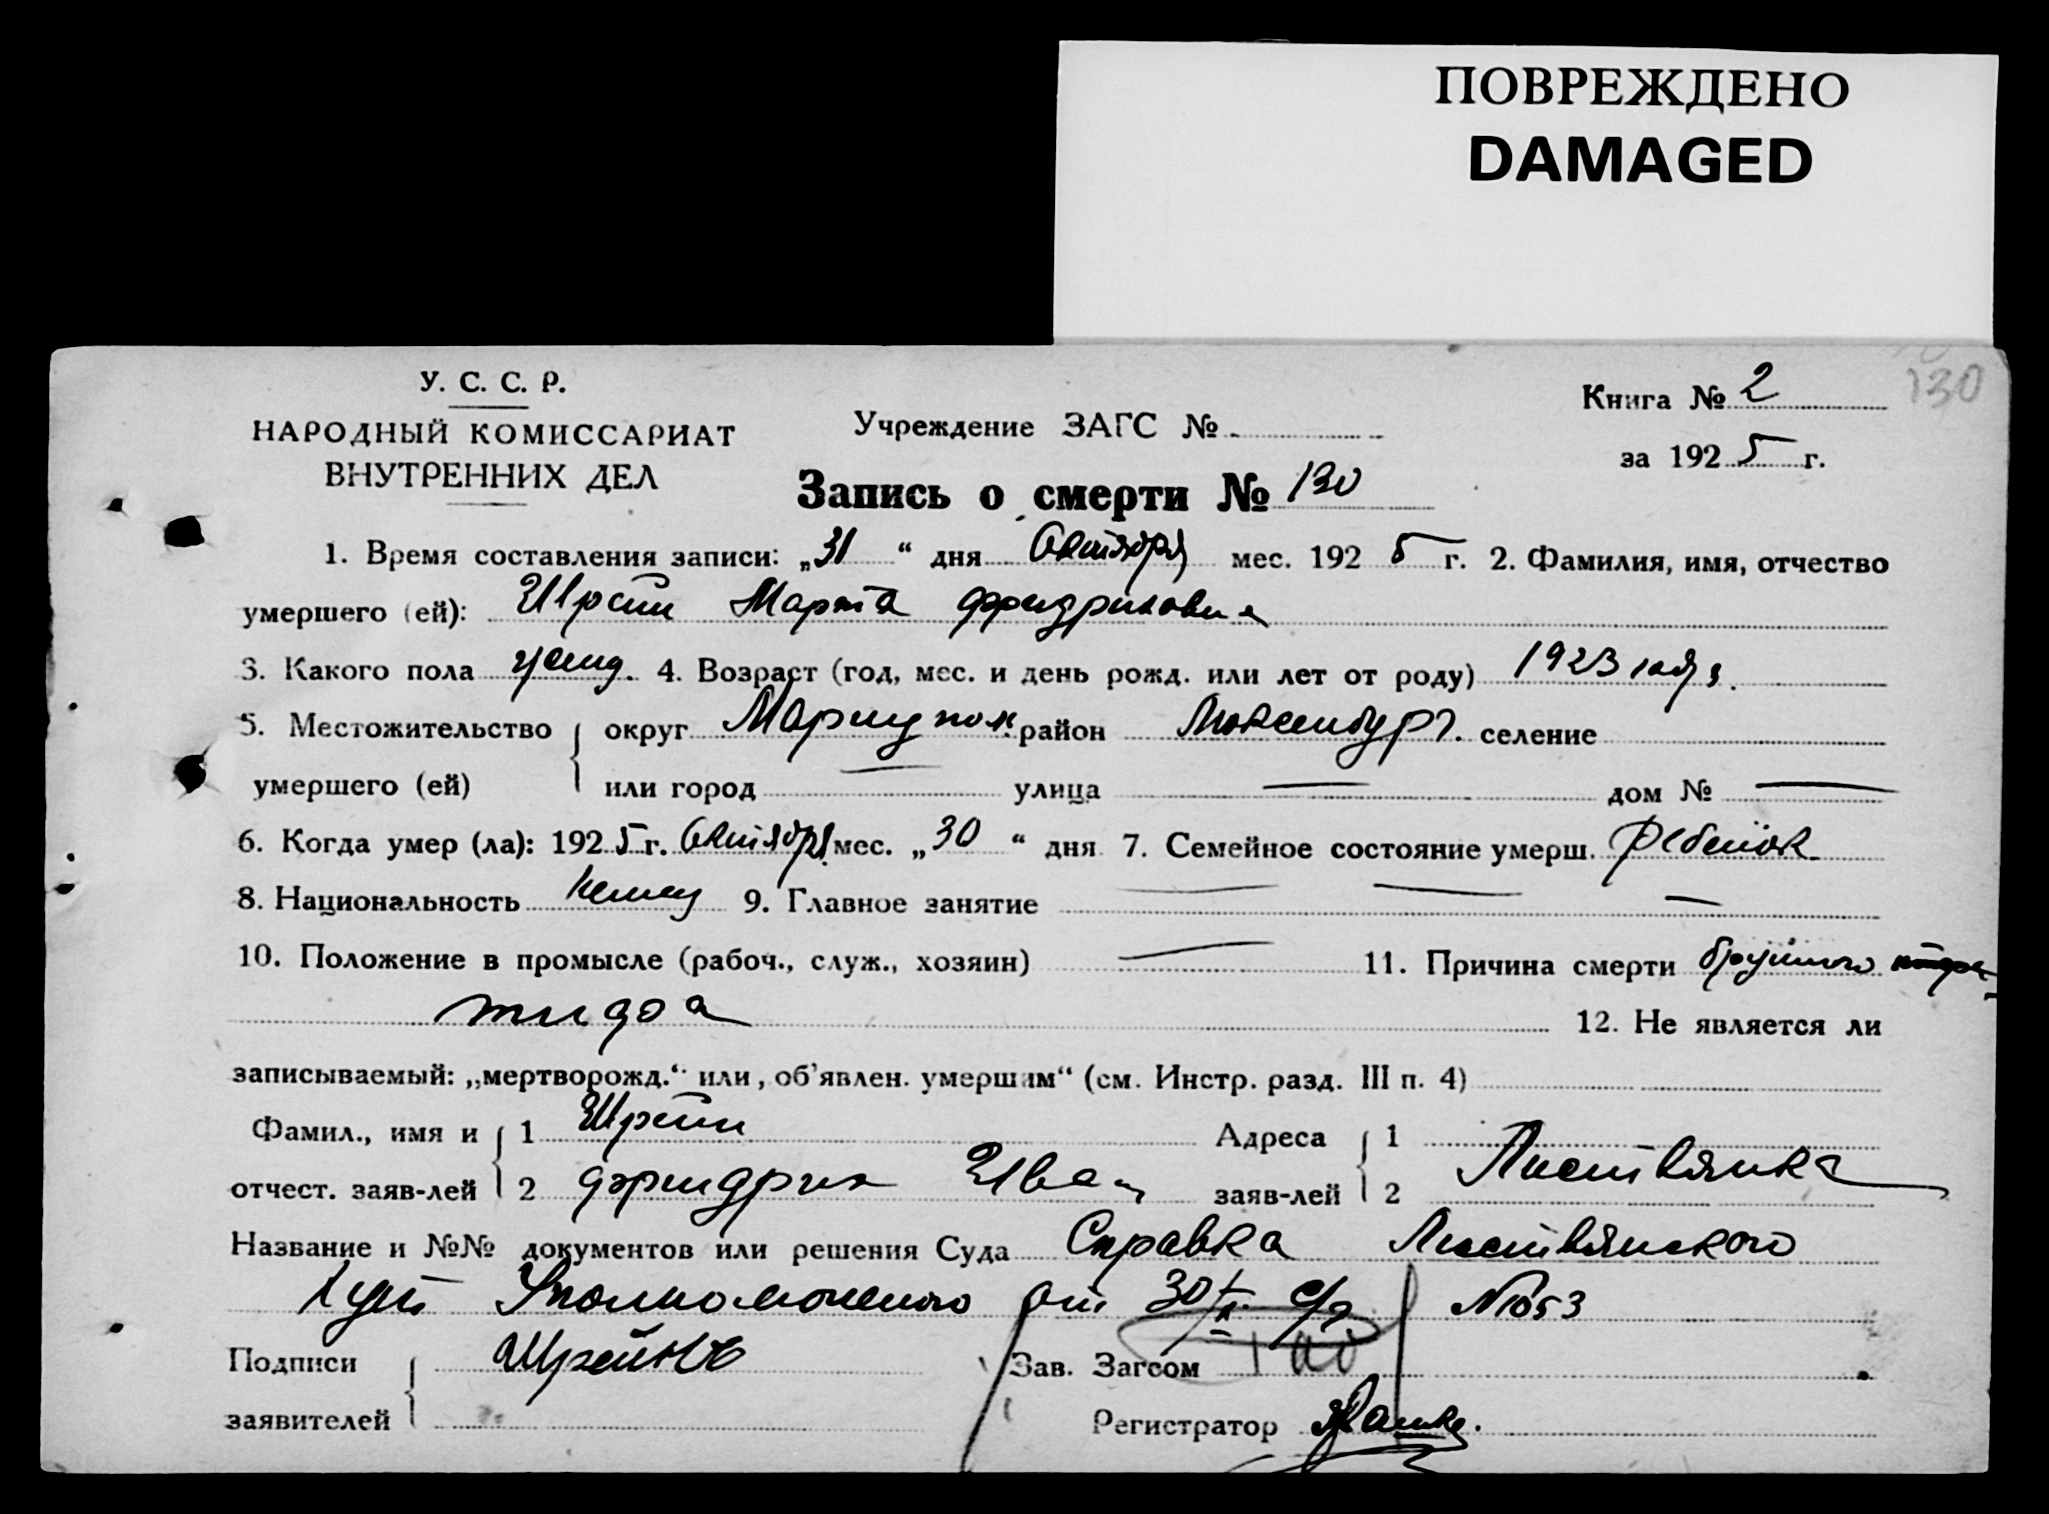 ПОВРЕЖДЕНО
DAMAGED
У. С. С. Р.
НАРОДНЫЙ КОМИССАРИАТ
ВНУТРЕННИХ ДЕЛ
Учреждение ЗАГС №
Книга № 2
130
за 1925 г.
Запись о смерти № 130
1. Время составления записи: „31“ дня Октября мес. 1925 г. 2. Фамилия, имя, отчество
умершего (ей): Марта Фридриховна
3. Какого пола женщ. 4. Возраст (год, мес. и день рожд. или лет от роду) 1923 года.
5. Местожительство округ Мариупол. район Люксенбург. селение
умершего (ей) или город — улица — дом № —
6. Когда умер (ла): 1925 г. Октября мес. „30“ дня 7. Семейное состояние умерш. ребенок
8. Национальность немец 9. Главное занятие — — —
10. Положение в промысле (рабоч., служ., хозяин) — 11. Причина смерти брушного
тифа 12. Не является ли
записываемый: „мертворожд.“ или „об'явлен. умершим“ (см. Инстр. разд. III п. 4)
Фамил., имя и 1 Адреса 1
отчест. заяв-лей 2 Фридрих Иван заяв-лей 2 Листвянка
Название и №№ документов или решения Суда Справка Листвянского
Хут Уполномоченого от 30/X с/г. №1053
Подписи Шрейнъ Зав. Загсом
заявителей Регистратор